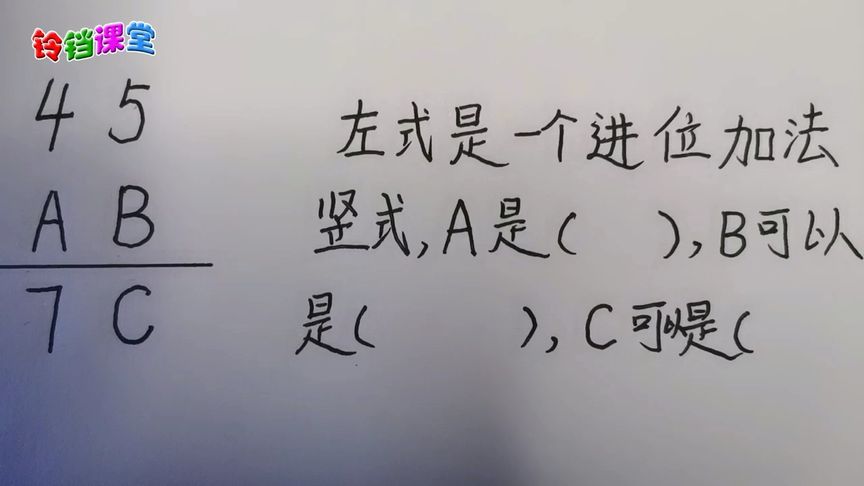 铃铛课堂
4 5
A B
7 C
左式是一个进位加法
竖式,A是( ),B可以
是( ),C可以是(